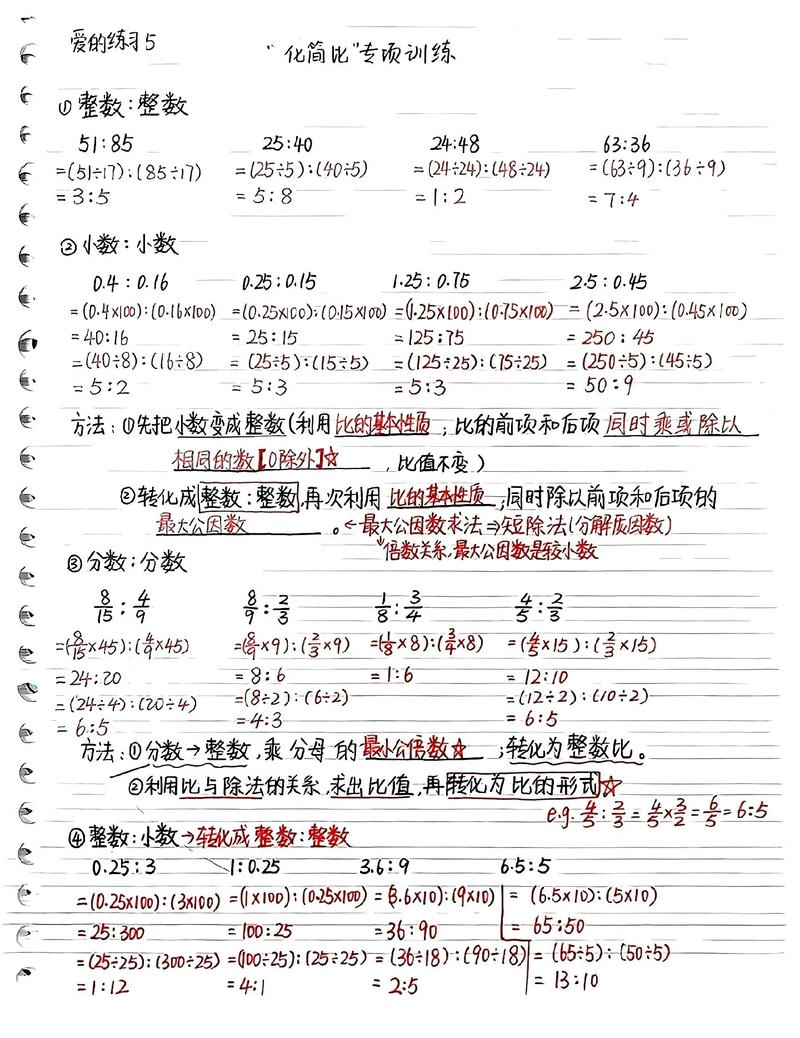 爱的练习5
"化简比"专项训练
①整数:整数
51:85 25:40 24:48 63:36
=(51÷17):(85÷17) =(25÷5):(40÷5) =(24÷24):(48÷24) =(63÷9):(36÷9)
=3:5 =5:8 =1:2 =7:4
②小数:小数
0.4:0.16 0.25:0.15 1.25:0.75 2.5:0.45
=(0.4×100):(0.16×100) =(0.25×100):(0.15×100) =(1.25×100):(0.75×100) =(2.5×100):(0.45×100)
=40:16 =25:15 =125:75 =250:45
=(40÷8):(16÷8) =(25÷5):(15÷5) =(125÷25):(75÷25) =(250÷5):(45÷5)
=5:2 =5:3 =5:3 =50:9
方法:①先把小数变成整数(利用比的基本性质;比的前项和后项同时乘或除以
相同的数【0除外】☆,比值不变)
②转化成整数:整数,再次利用比的基本性质,同时除以前项和后项的
最大公因数。←最大公因数求法⇒短除法(分解质因数)
↓倍数关系,最大公因数是较小数
③分数:分数
8/15:4/9 8/9:2/3 1/8:3/4 4/5:2/3
=(8/15×45):(4/9×45) =(8/9×9):(2/3×9) =(1/8×8):(3/4×8) =(4/5×15):(2/3×15)
=24:20 =8:6 =1:6 =12:10
=(24÷4):(20÷4) =(8÷2):(6÷2) =(12÷2):(10÷2)
=6:5 =4:3 =6:5
方法:①分数→整数,乘分母的最小公倍数☆;转化为整数比。
②利用比与除法的关系,求出比值,再转化为比的形式☆
e.g. 4/5:2/3=4/5×3/2=6/5=6:5
④整数:小数→转化成整数:整数
0.25:3 1:0.25 3.6:9 6.5:5
=(0.25×100):(3×100) =(1×100):(0.25×100) =(3.6×10):(9×10) =(6.5×10):(5×10)
=25:300 =100:25 =36:90 =65:50
=(25÷25):(300÷25) =(100÷25):(25÷25) =(36÷18):(90÷18) =(65÷5):(50÷5)
=1:12 =4:1 =2:5 =13:10